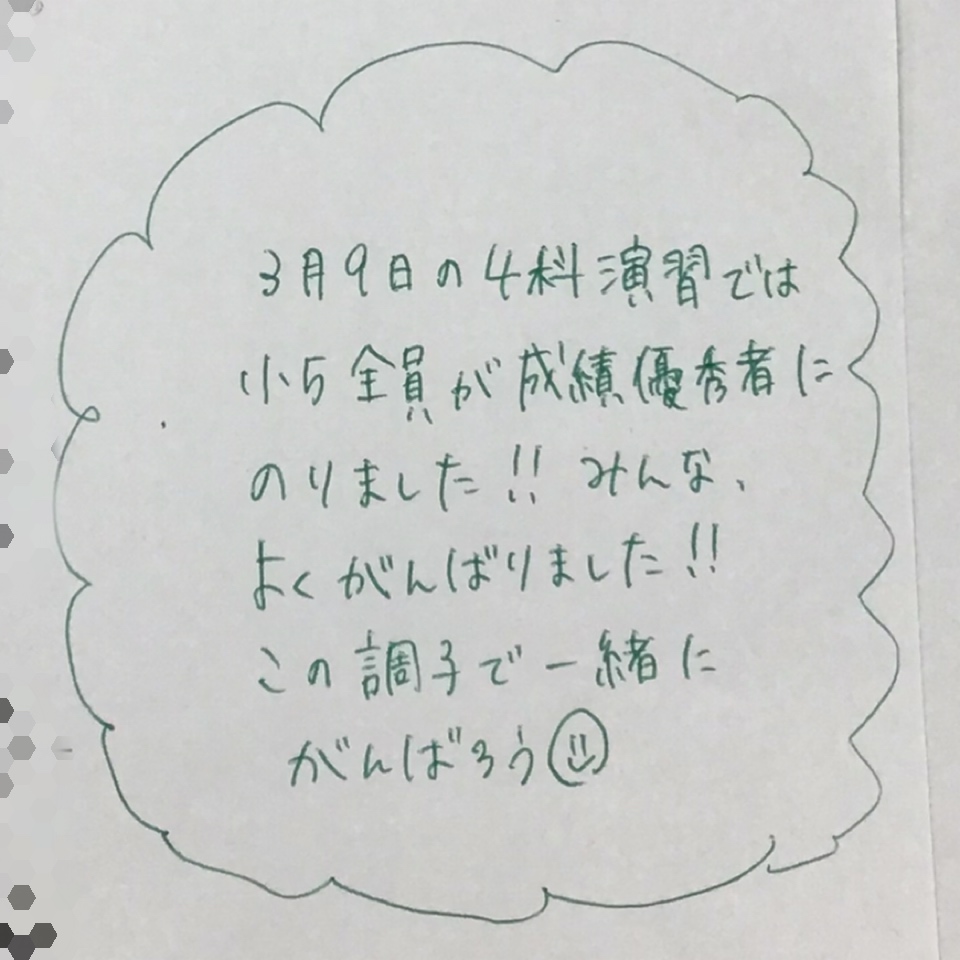 3月9日の4科演習では
小5全員が成績優秀者に
のりました!! みんな、
よくがんばりました!!
この調子で一緒に
がんばろう